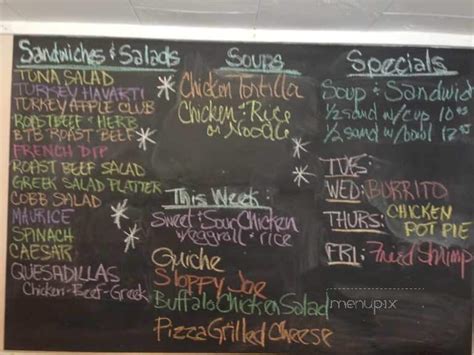 Sandwiches & Salads
TUNA SALAD
TURKEY HAVARTI
TURKEY APPLE CLUB
ROAST BEEF & HERB
BTB ROAST BEEF
FRENCH DIP
ROAST BEEF SALAD
GREEK SALAD PLATTER
COBB SALAD
MAURICE
SPINACH
CAESAR
QUESADILLAS
Chicken-Beef-Greek
Soups
Chicken Tortilla
Chicken & Rice
or Noodle
This Week
Sweet & Sour Chicken
w/eggroll & rice
Quiche
Sloppy Joe
Buffalo Chicken Salad
Pizza Grilled Cheese
Specials
Soup & Sandwich
1/2 sand w/cup 10
1/2 sand w/bowl 12
TUES:
WED: BURRITO
THURS: CHICKEN
POT PIE
FRI: Fried Shrimp
menupix